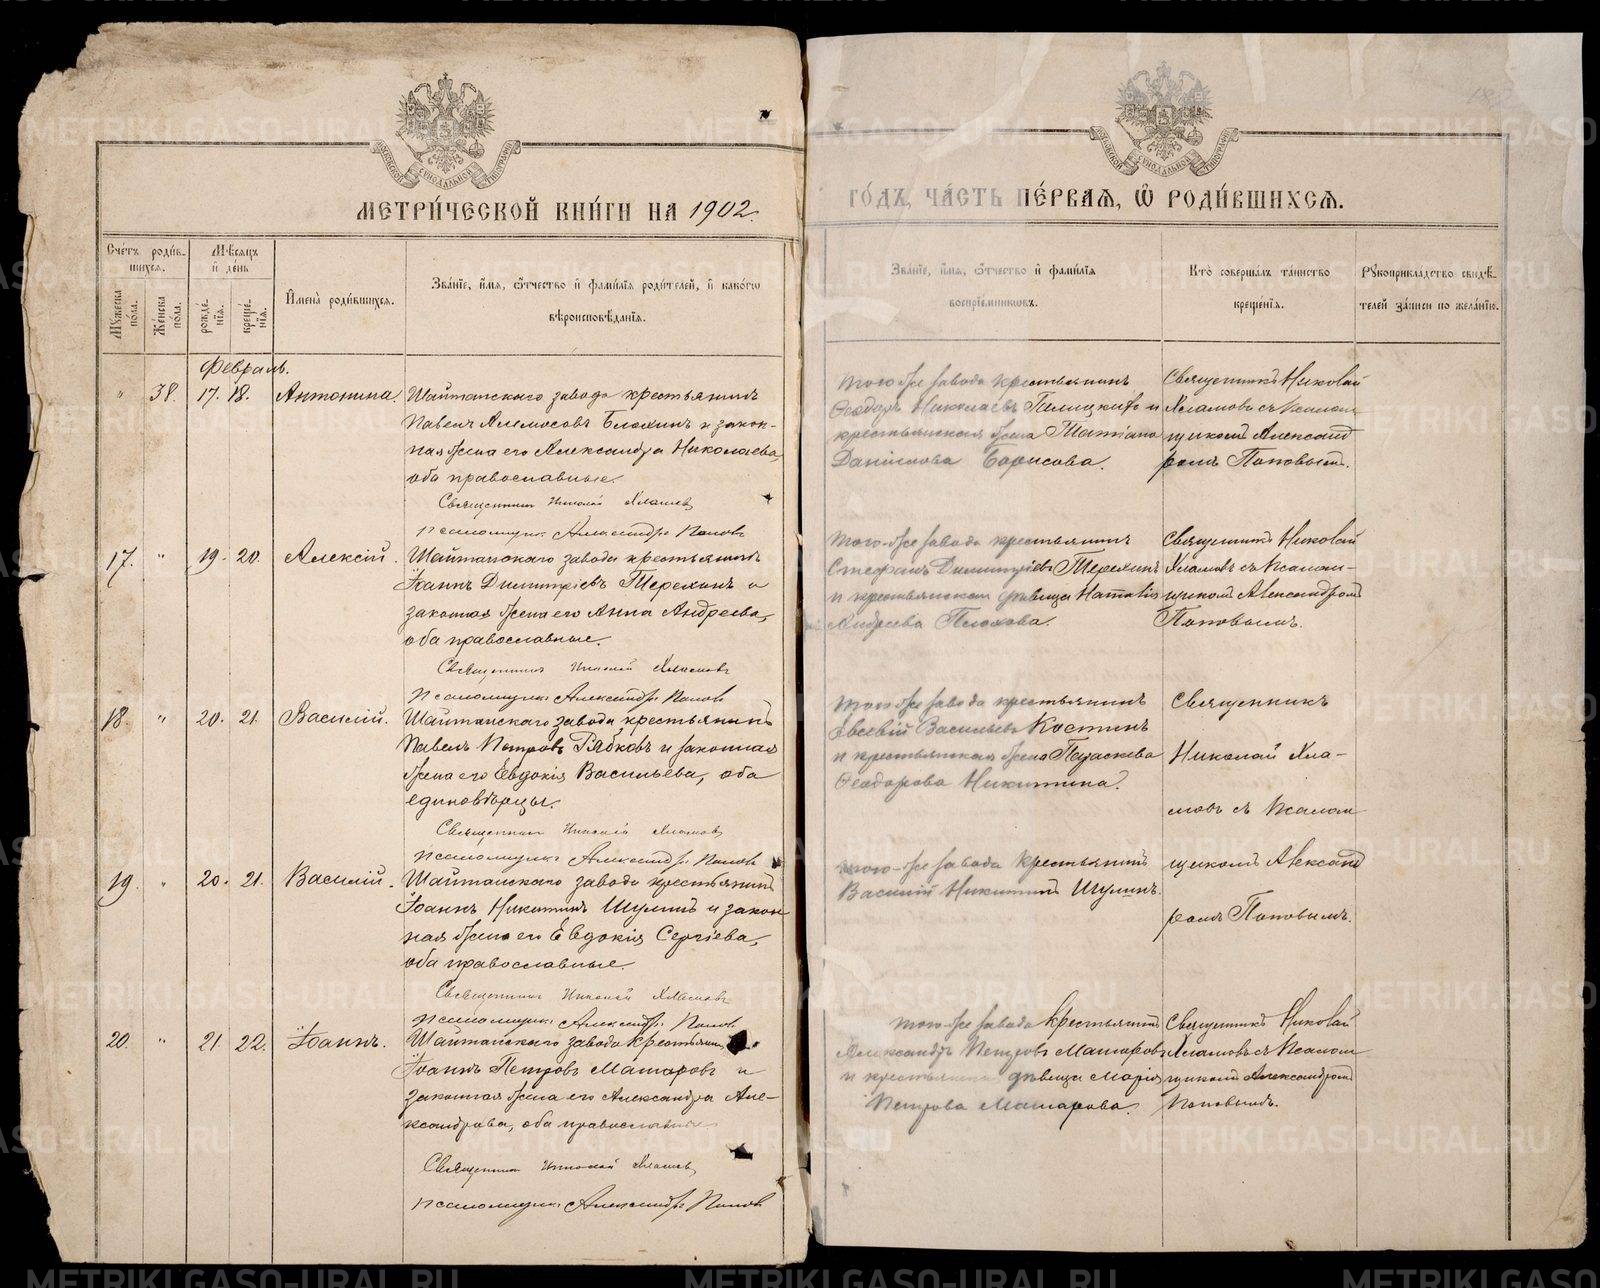 МЕТРИ́ЧЕСКОЙ КНИ́ГИ НА 1902.
ГО́ДЪ, ЧА́СТЬ ПЕ́РВАѦ, Ѽ РОДИ́ВШИХСѦ.
Сче́тъ роди́в-
шихсѧ.
Мꙋ́жеска по́ла.
Же́нска по́ла.
Мѣ́сѧцъ
и҆ де́нь
рожде́-
нїѧ.
креще́-
нїѧ.
И҆мена̀ роди́вшихсѧ.
Зва́нїе, и҆́мѧ, ѻ҆́тчество и҆ фами́лїѧ роди́телей, и҆ како́гѡ
вѣроисповѣ́данїѧ.
Зва́нїе, и҆́мѧ, ѻ҆́тчество и҆ фами́лїѧ
воспрїе́мникѡвъ.
Кто̀ соверша́лъ та́инство
креще́нїѧ.
Рꙋкоприкла́дство свидѣ́-
телей за́писи по жела́нїю.
Февраль.
" 38. 17. 18. Антонина.
Шайтанскаго завода крестьянинъ
Павелъ Блохинъ и закон-
ная жена его Александра Николаева,
оба православные.
Священникъ Николай Хламовъ
Псаломщикъ Александръ Поповъ
того-же завода крестьянинъ
Ѳеодоръ Николаевъ и
крестьянская жена Татіана
Даніилова Борисова.
Священникъ Николай
Хламовъ съ псалом-
щикомъ Александ
ромъ Поповымъ.
17. " 19. 20. Алексій.
Шайтанскаго завода крестьянинъ
Іоаннъ Димитріевъ Терехинъ и
законная жена его Анна Андреева,
оба православные.
Священникъ Николай Хламовъ
Псаломщикъ Александръ Поповъ
того-же завода крестьянинъ
Стефанъ Димитріевъ Терехинъ
и крестьянская дѣвица Наталія
Андреева Плохова.
Священникъ Николай
Хламовъ съ псалом-
щикомъ Александромъ
Поповымъ.
18. " 20. 21. Василій.
Шайтанскаго завода крестьянинъ
Павелъ Петровъ Рябковъ и законная
жена его Евдокія Васильева, оба
единовѣрцы.
Священникъ Николай Хламовъ
Псаломщикъ Александръ Поповъ
того-же завода крестьянинъ
Евсевій Васильевъ Костинъ
и крестьянская жена Параскева
Ѳеодорова Никитина.
Священникъ
Николай Хла-
мовъ съ псалом
щикомъ Александ
ромъ Поповымъ.
19. " 20. 21. Василій.
Шайтанскаго завода крестьянинъ
Іоаннъ Никитинъ Шулинъ и закон
ная жена его Евдокія Сергіева,
оба православные.
Священникъ Николай Хламовъ
Псаломщикъ Александръ Поповъ
того-же завода крестьянинъ
Василій Никитинъ Шулинъ.
20. " 21. 22. Іоаннъ.
Шайтанскаго завода крестьянинъ
Іоаннъ Петровъ Матаровъ и
законная жена его Александра Але-
ксандрова, оба православные
Священникъ Николай Хламовъ
Псаломщикъ Александръ Поповъ
того-же завода крестьянинъ
Александръ Петровъ Матаровъ
и крестьянская дѣвица Марія
Петрова Матарова.
Священникъ Николай
Хламовъ съ псалом
щикомъ Александромъ
Поповымъ.
METRIKI.GASO-URAL.RU